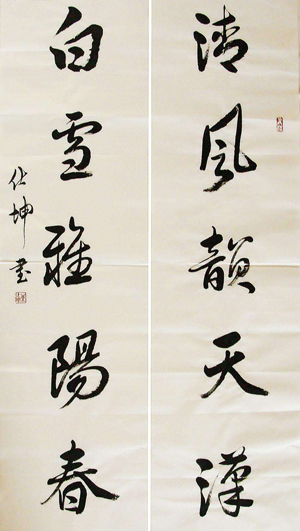 清風韻天漢
白雪雅陽春
仕坤書